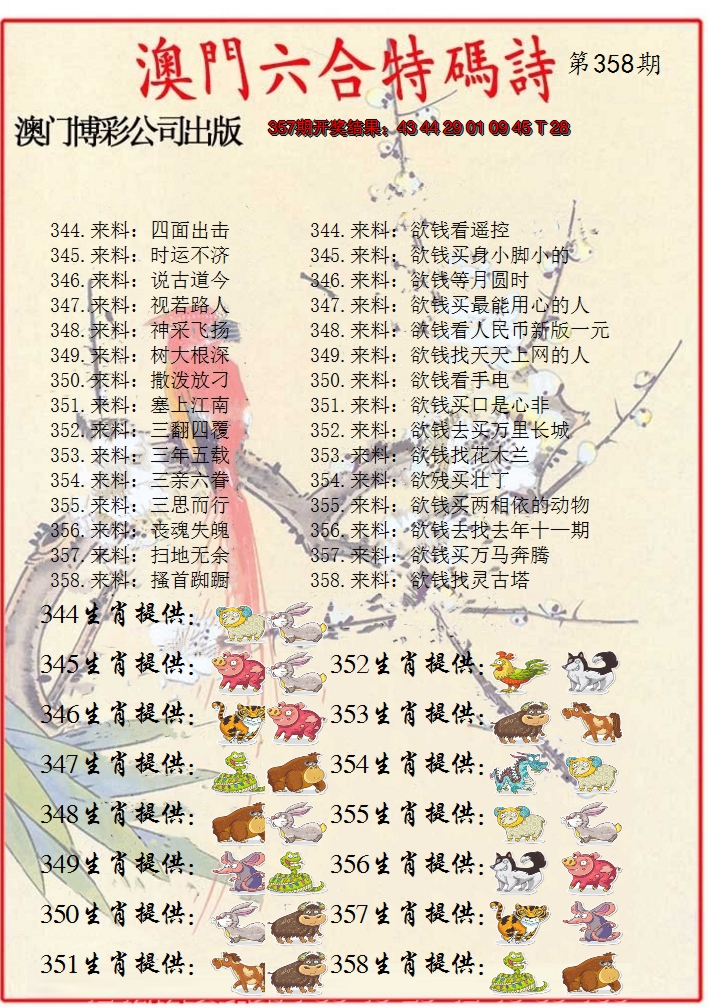 澳門六合特碼詩 第358期
澳门博彩公司出版 357期开奖结果：43 44 29 01 09 45 T 28
344.来料：四面出击 344.来料：欲钱看遥控
345.来料：时运不济 345.来料：欲钱买身小脚小的
346.来料：说古道今 346.来料：欲钱等月圆时
347.来料：视若路人 347.来料：欲钱买最能用心的人
348.来料：神采飞扬 348.来料：欲钱看人民币新版一元
349.来料：树大根深 349.来料：欲钱找天天上网的人
350.来料：撒泼放刁 350.来料：欲钱看手电
351.来料：塞上江南 351.来料：欲钱买口是心非
352.来料：三翻四覆 352.来料：欲钱去买万里长城
353.来料：三年五载 353.来料：欲钱找花木兰
354.来料：三亲六眷 354.来料：欲残买壮丁
355.来料：三思而行 355.来料：欲钱买两相依的动物
356.来料：丧魂失魄 356.来料：欲钱去找去年十一期
357.来料：扫地无余 357.来料：欲钱买万马奔腾
358.来料：搔首踟蹰 358.来料：欲钱找灵古塔
344生肖提供：
345生肖提供： 352生肖提供：
346生肖提供： 353生肖提供：
347生肖提供： 354生肖提供：
348生肖提供： 355生肖提供：
349生肖提供： 356生肖提供：
350生肖提供： 357生肖提供：
351生肖提供： 358生肖提供：